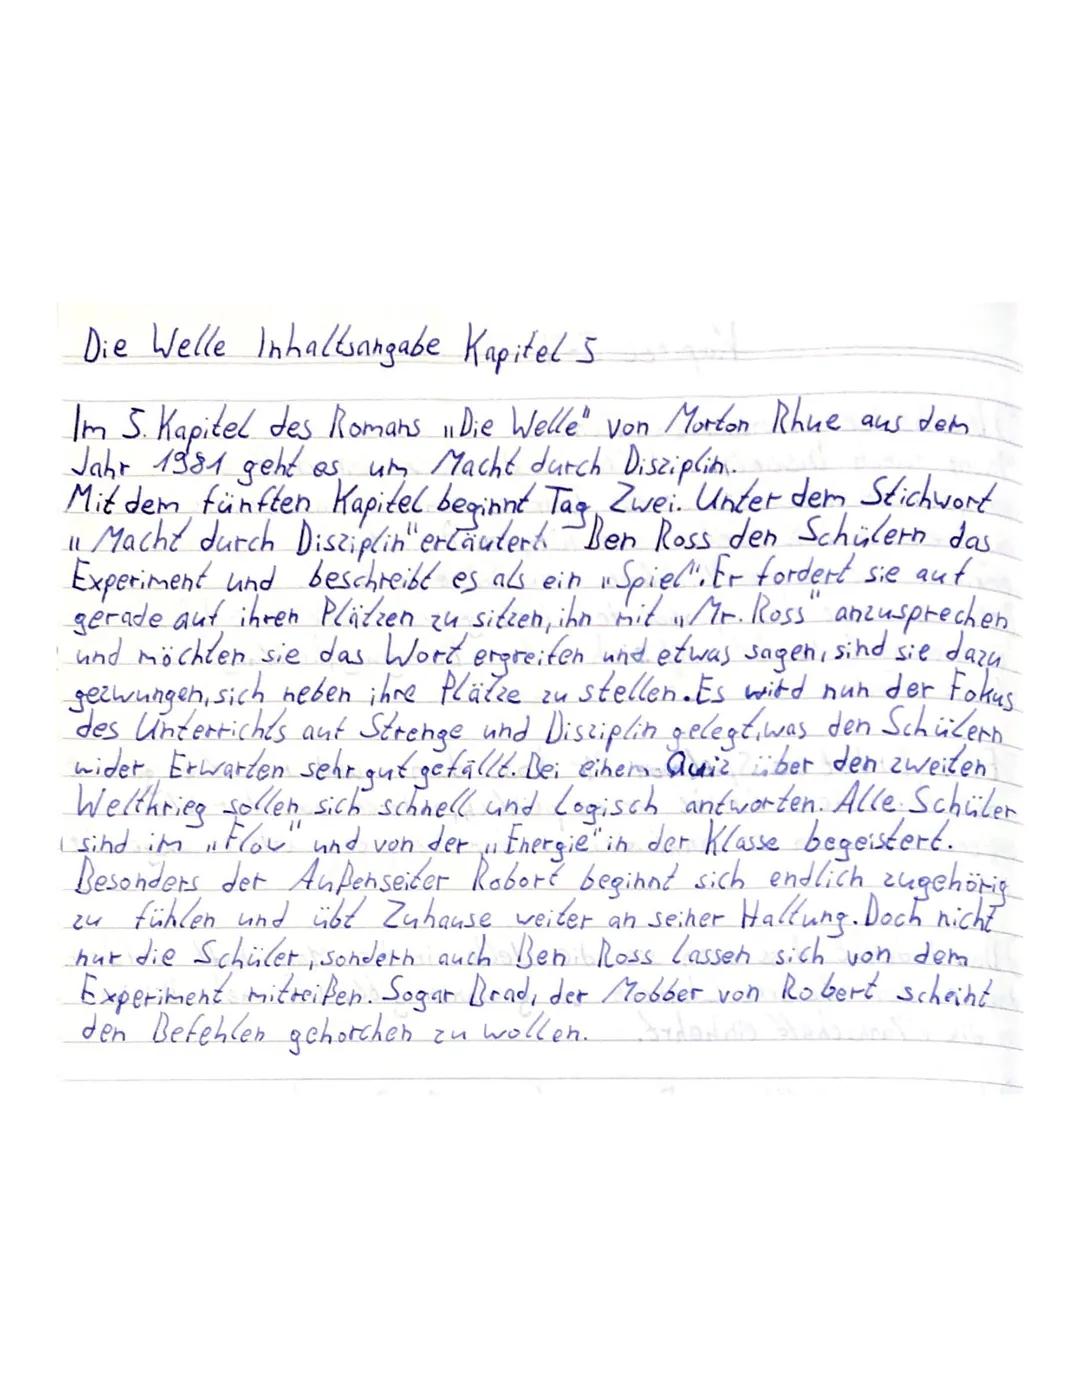 Die Welle Inhaltsangabe Kapitel 5
Im 5. Kapitel des Romans „Die Welle" von Morton Rhue aus dem
Jahr 1981 geht es um Macht durch Disziplin.
Mit dem fünften Kapitel beginnt Tag Zwei. Unter dem Stichwort
„Macht durch Disziplin" erläutert Ben Ross den Schülern das
Experiment und beschreibt es als ein „Spiel". Er fordert sie auf
gerade auf ihren Plätzen zu sitzen, ihn mit „Mr. Ross" anzusprechen
und möchten sie das Wort ergreifen und etwas sagen, sind sie dazu
gezwungen, sich neben ihre Plätze zu stellen. Es wird nun der Fokus
des Unterrichts auf Strenge und Disziplin gelegt, was den Schülern
wider Erwarten sehr gut gefällt. Bei einem Quiz über den zweiten
Weltkrieg sollen sich schnell und Logisch antworten. Alle Schüler
sind im „Flow" und von der „Energie" in der Klasse begeistert.
Besonders der Außenseiter Robert beginnt sich endlich zugehörig
zu fühlen und übt Zuhause weiter an seiner Haltung. Doch nicht
nur die Schüler, sondern auch Ben Ross lassen sich von dem
Experiment mitreißen. Sogar Brad, der Mobber von Robert scheint
den Befehlen gehorchen zu wollen.